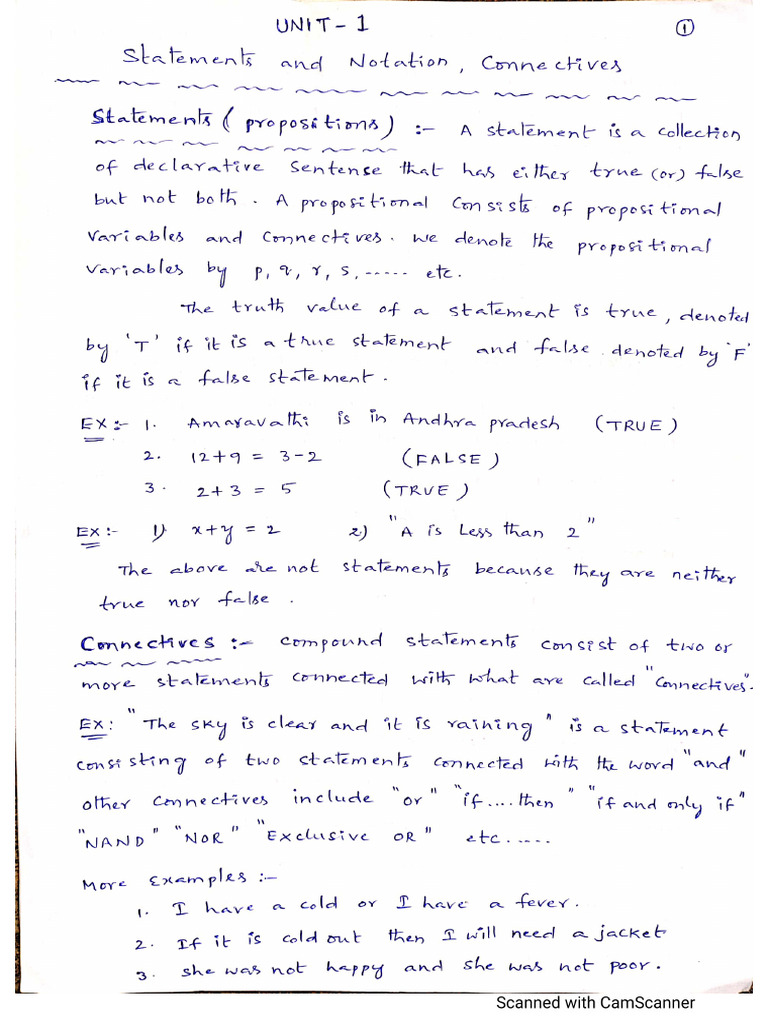 UNIT-1
①
Statements and Notation, Connectives
Statements (propositions) :- A statement is a collection
of declarative sentense that has either true (or) false
but not both. A propositional consists of propositional
variables and connectives. we denote the propositional
variables by p, q, r, s, ..... etc.
The truth value of a statement is true, denoted
by 'T' if it is a true statement and false denoted by 'F'
if it is a false statement.
EX :- 1. Amaravathi is in Andhra pradesh (TRUE)
2. 12+9 = 3-2 (FALSE)
3. 2+3 = 5 (TRUE)
EX :- 1) x+y = 2 2) "A is Less than 2"
The above are not statements because they are neither
true nor false.
Connectives :- compound statements consist of two or
more statements connected with what are called "connectives".
EX: "The sky is clear and it is raining" is a statement
consisting of two statements connected with the word "and"
other connectives include "or" "if....then" "if and only if"
"NAND" "NOR" "Exclusive OR" etc.....
More Examples :-
1. I have a cold or I have a fever.
2. If it is cold out then I will need a jacket
3. she was not happy and she was not poor.
Scanned with CamScanner